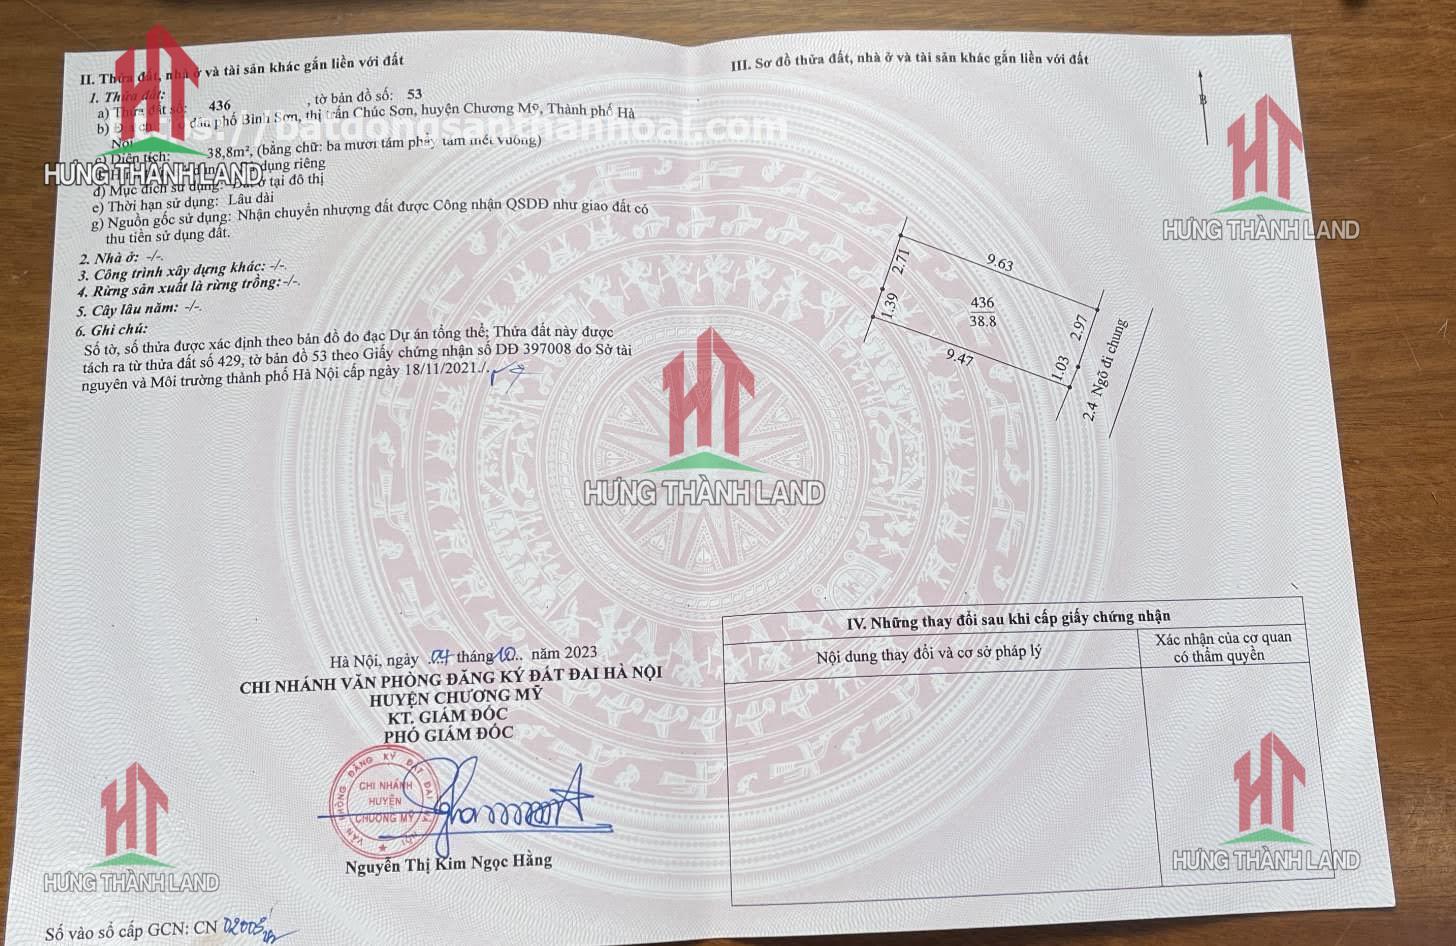 II. Thửa đất, nhà ở và tài sản khác gắn liền với đất
1. Thửa đất:
a) Thửa đất số: 436 , tờ bản đồ số: 53
b) phố Bình Sơn, thị trấn Chúc Sơn, huyện Chương Mỹ, Thành phố Hà
Nội
https://batdongsanthanhoai.com
c) Diện tích: 38,8m², (bằng chữ: ba mươi tám phẩy tám mét vuông)
dụng riêng
HƯNG THÀNH LAND
đ) Mục đích sử dụng: Đất ở tại đô thị
e) Thời hạn sử dụng: Lâu dài
g) Nguồn gốc sử dụng: Nhận chuyển nhượng đất được Công nhận QSDĐ như giao đất có
thu tiền sử dụng đất.
2. Nhà ở: -/-.
3. Công trình xây dựng khác: -/-.
4. Rừng sản xuất là rừng trồng:-/-.
5. Cây lâu năm: -/-.
6. Ghi chú:
Số tờ, số thửa được xác định theo bản đồ đo đạc Dự án tổng thể; Thửa đất này được
tách ra từ thửa đất số 429, tờ bản đồ 53 theo Giấy chứng nhận số DĐ 397008 do Sở tài
nguyên và Môi trường thành phố Hà Nội cấp ngày 18/11/2021./.
Hà Nội, ngày 04 tháng 10 năm 2023
CHI NHÁNH VĂN PHÒNG ĐĂNG KÝ ĐẤT ĐAI HÀ NỘI
HUYỆN CHƯƠNG MỸ
KT. GIÁM ĐỐC
PHÓ GIÁM ĐỐC
VĂN PHÒNG ĐĂNG KÝ ĐẤT ĐAI
CHI NHÁNH
HUYỆN
CHƯƠNG MỸ
Nguyễn Thị Kim Ngọc Hằng
HƯNG THÀNH LAND
Số vào sổ cấp GCN: CN
III. Sơ đồ thửa đất, nhà ở và tài sản khác gắn liền với đất
B
HƯNG THÀNH LAND
2.71
9.63
1.39
436
38.8
2.97
9.47
1.03
2.4 Ngõ đi chung
HƯNG THÀNH LAND
IV. Những thay đổi sau khi cấp giấy chứng nhận
Nội dung thay đổi và cơ sở pháp lý
Xác nhận của cơ quan
có thẩm quyền
HƯNG THÀNH LAND